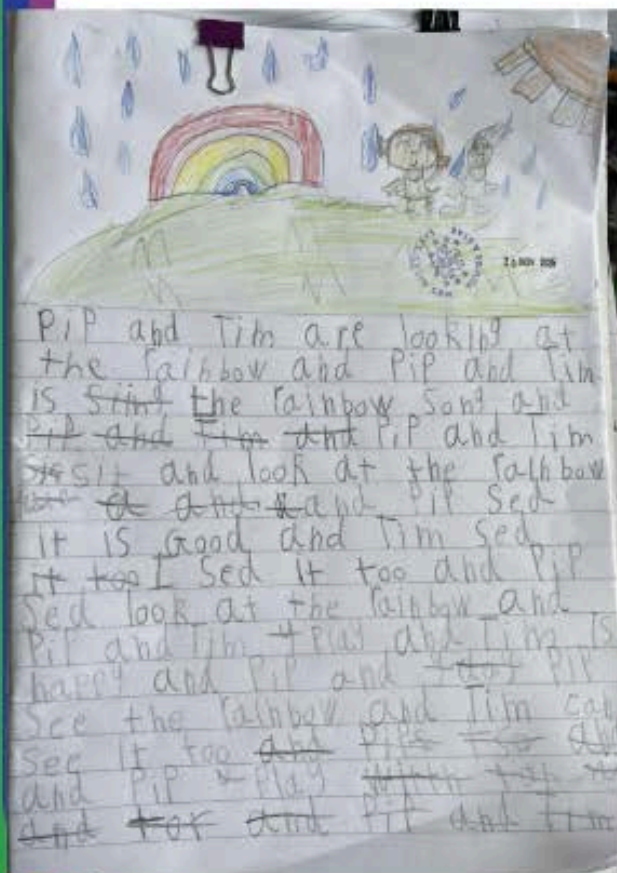 26 NOV
PiP and Tim are looking at
the rainbow and PiP and Tim
is Siing the rainbow Song and
PiP and Tim and PiP and Tim
Sit and look at the rainbow
a and and PiP Sed
it is Good and Tim Sed
it too I Sed it too and PiP
Sed look at the rainbow and
PiP and Tim Play and Tim is
happy and PiP and PiP
See the rainbow and Tim can
See it too and
and PiP Play
and for and PiP and Tim